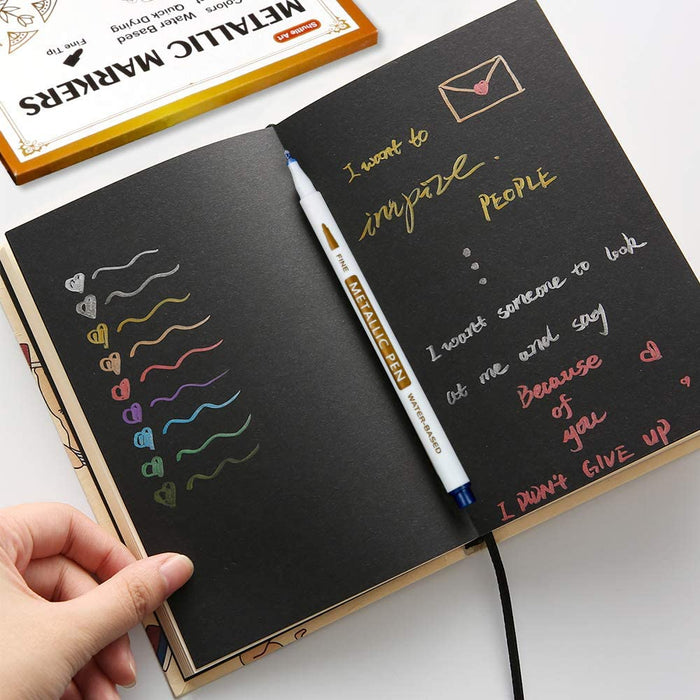 Colors Water Based
Quick Drying
Fine Tip
Shuttle Art
METALLIC MARKERS
I want to
inspize.
PEOPLE
I want someone to look
at me and say
Because
of
you
I DIDN'T GIVE UP
FINE
METALLIC PEN
WATER-BASED